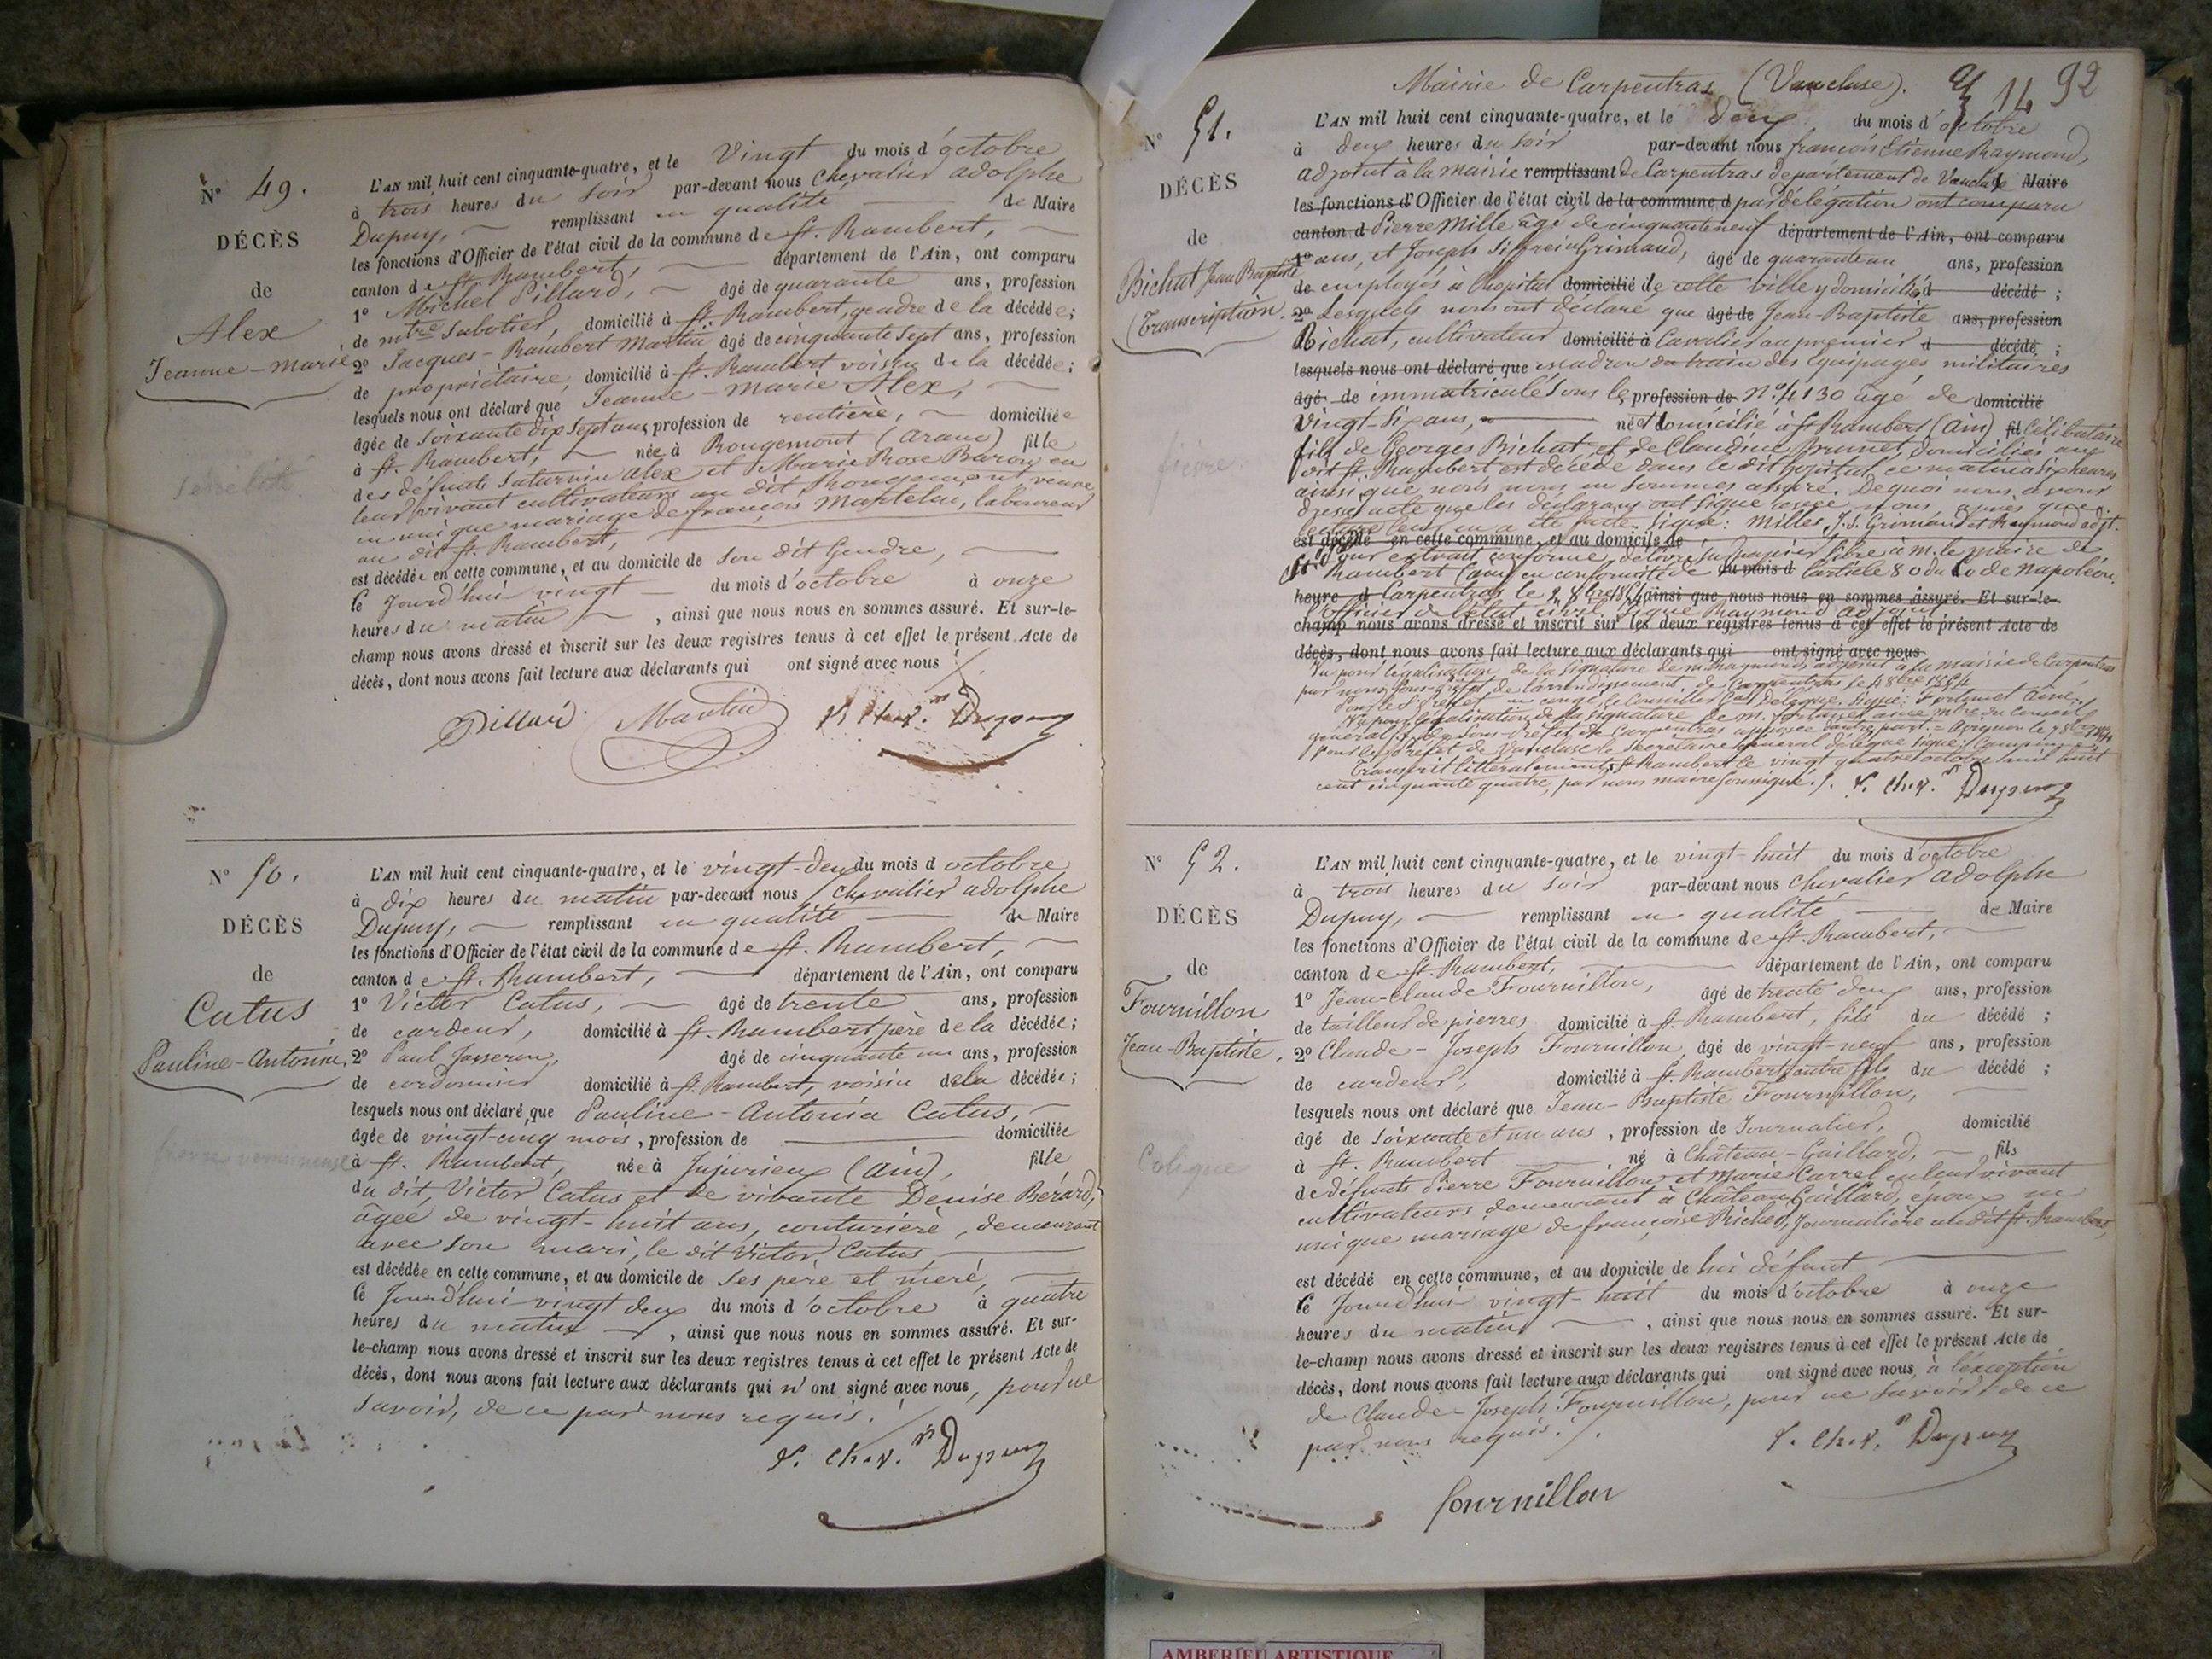 N° 49.
DÉCÈS
de
Alex
Jeanne-Marie
L'AN mil huit cent cinquante-quatre, et le Vingt du mois d'octobre
à trois heures du soir par-devant nous Chevalier adolphe
Dupuy, remplissant en qualité de Maire
les fonctions d'Officier de l'état civil de la commune de St. Rambert,
canton de St. Rambert, département de l'Ain, ont comparu
1° Michel Pillard, âgé de quarante ans, profession
de mtre Sabotier, domicilié à St. Rambert, gendre de la décédée;
2° Jacques-Rambert Martin âgé de cinquante sept ans, profession
de propriétaire, domicilié à St. Rambert voisin de la décédée;
lesquels nous ont déclaré que Jeanne-Marie Alex,
âgée de soixante dix sept ans profession de rentière, domiciliée
à St. Rambert, née à Rougemont (Aranc) fille
des défunts Saturnin Alex et Marie Rose Baron en
leur vivant cultivateurs au dit Rougemont, veuve
en unique mariage de françois Mantelin, laboureur
au dit St. Rambert,
est décédée en cette commune, et au domicile de son dit Gendre,
le jourd'hui vingt du mois d'octobre à onze
heures du matin, ainsi que nous nous en sommes assuré. Et sur-le-
champ nous avons dressé et inscrit sur les deux registres tenus à cet effet le présent Acte de
décès, dont nous avons fait lecture aux déclarants qui ont signé avec nous
Pillard Martin Dupuy
N° 50.
DÉCÈS
de
Catus
Pauline-Antonia.
L'AN mil huit cent cinquante-quatre, et le vingt-deux du mois d'octobre
à dix heures du matin par-devant nous Chevalier adolphe
Dupuy, remplissant en qualité de Maire
les fonctions d'Officier de l'état civil de la commune de St. Rambert,
canton de St. Rambert, département de l'Ain, ont comparu
1° Victor Catus, âgé de trente ans, profession
de cardeur, domicilié à St. Rambert père de la décédée;
2° Paul Jasseron, âgé de cinquante un ans, profession
de cordonnier domicilié à St. Rambert, voisin de la décédée;
lesquels nous ont déclaré que Pauline-Antonia Catus,
âgée de vingt-cinq mois, profession de domiciliée
à St. Rambert, née à Jujurieux (Ain), fille
du dit, Victor Catus et de vivante Denise Bérard,
âgée de vingt-huit ans, couturière, demeurant
avec son mari, le dit Victor Catus,
est décédée en cette commune, et au domicile de ses père et mère,
le jourd'hui vingt deux du mois d'octobre à quatre
heures du matin, ainsi que nous nous en sommes assuré. Et sur-
le-champ nous avons dressé et inscrit sur les deux registres tenus à cet effet le présent Acte de
décès, dont nous avons fait lecture aux déclarants qui n'ont signé avec nous, pour ne
savoir, de ce par nous requis.
Dupuy
Mairie de Carpentras (Vaucluse). 14 92
N° 51.
DÉCÈS
de
Bichat Jean Baptiste
(Transcription.
fièvre
L'AN mil huit cent cinquante-quatre, et le deux du mois d'octobre
à deux heures du soir par-devant nous françois Etienne Raymond,
adjoint à la Mairie remplissant de Carpentras département de Vaucluse Maire
les fonctions d'Officier de l'état civil de la commune d par délégation ont comparu
canton d Pierre Mille âgé de cinquante neuf département de l'Ain, ont comparu
1° ans, et Joseph Siffrein Grimaud, âgé de quarante un ans, profession
de employés à l'hopital domicilié de cette ville y domiciliés d décédé ;
2° Lesquels nous ont déclaré que âgé de Jean-Baptiste ans, profession
Bichat, cultivateur domicilié à Cavalier au premier d décédé ;
lesquels nous ont déclaré que escadron du train des équipages militaires
âgé de immatriculé sous le profession de N° 4130 âgé de domicilié
Vingt-six ans, né domicilié à St Rambert (Ain) fil Célibataire
fils de Georges Bichat et de Claudine Brunet, domiciliés au
dit St. Rambert est décédé dans le dit hopital ce matin à six heures
ainsi que nous nous en sommes assuré. De quoi nous avons
dressé acte que les déclarans ont signé avec nous après que
lecture leur en a été faite. Signé: Milles, J. S. Grimaud et Raymond adjt.
est décédé en cette commune, et au domicile de
Pour extrait conforme, délivré sur papier libre à M. le Maire de
St. Rambert (Ain) en conformité de du mois d l'article 80 du Code Napoléon.
heure d Carpentras le ainsi que nous nous en sommes assuré. Et sur-le-
l'officier de l'état civil signé Raymond adjoint
champ nous avons dressé et inscrit sur les deux registres tenus à cet effet le présent Acte de
décès, dont nous avons fait lecture aux déclarants qui ont signé avec nous
Vu pour légalisation de la signature de M. Raymond adjoint à la mairie de Carpentras
par nous Sous-préfet de l'arrondissement de Carpentras le 4 8bre 1854
Transcrit littéralement à St. Rambert le vingt quatre octobre mil huit
cent cinquante quatre, par nous maire soussigné. Dupuy
N° 52.
DÉCÈS
de
Fournillon
Jean-Baptiste.
Colique
L'AN mil huit cent cinquante-quatre, et le vingt-huit du mois d'octobre
à trois heures du soir par-devant nous Chevalier adolphe
Dupuy, remplissant en qualité de Maire
les fonctions d'Officier de l'état civil de la commune de St. Rambert,
canton de St. Rambert, département de l'Ain, ont comparu
1° Jean-Claude Fournillon, âgé de trente deux ans, profession
de tailleur de pierres domicilié à St. Rambert, fils du décédé ;
2° Claude-Joseph Fournillon âgé de vingt-neuf ans, profession
de cardeur, domicilié à St. Rambert, autre fils du décédé ;
lesquels nous ont déclaré que Jean-Baptiste Fournillon,
âgé de soixante et un ans, profession de Journalier, domicilié
à St. Rambert né à Château-Gaillard, fils
de défunts Pierre Fournillon et Marie Carrel en leur vivant
cultivateurs demeurant à Château Gaillard, époux en
unique mariage de françoise Riches, Journalière au dit St. Rambert,
est décédé en cette commune, et au domicile de lui défunt
le jourd'hui vingt-huit du mois d'octobre à onze
heures du matin, ainsi que nous nous en sommes assuré. Et sur-
le-champ nous avons dressé et inscrit sur les deux registres tenus à cet effet le présent Acte de
décès, dont nous avons fait lecture aux déclarants qui ont signé avec nous, à l'exception
de Claude-Joseph Fournillon, pour ne savoir de ce
par nous requis.
Dupuy
fournillon
AMBERIEU ARTISTIQUE